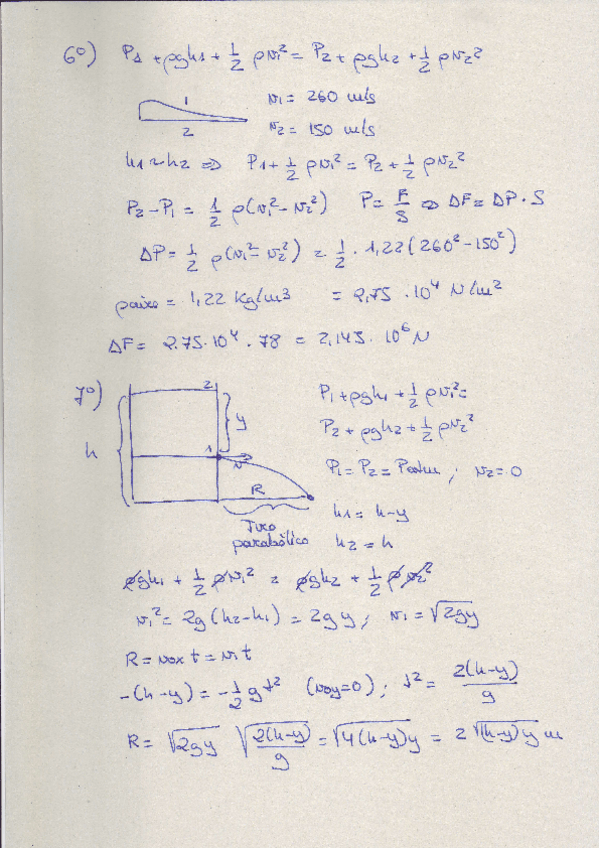 6º) P1 + ρgh1 + 1/2 ρv1² = P2 + ρgh2 + 1/2 ρv2²
1
2
v1 = 260 m/s
v2 = 150 m/s
h1 ≈ h2 ⇒ P1 + 1/2 ρv1² = P2 + 1/2 ρv2²
P2 - P1 = 1/2 ρ(v1² - v2²) P = F/S ⇒ ΔF = ΔP · S
ΔP = 1/2 ρ(v1² - v2²) = 1/2 · 1,22 (260² - 150²)
ρaire = 1,22 Kg/m3 = 2,75 · 10⁴ N/m²
ΔF = 2.75·10⁴ · 78 = 2,145 · 10⁶ N
7º)
2
h
y
1
v
R
Tiro
parabólico
P1 + ρgh1 + 1/2 ρv1² =
P2 + ρgh2 + 1/2 ρv2²
P1 = P2 = Patm ; v2 = 0
h1 = h - y
h2 = h
ρgh1 + 1/2 ρv1² = ρgh2 + 1/2 ρv2²
v1² = 2g (h2 - h1) = 2gy ; v1 = √2gy
R = vox t = v1 t
-(h - y) = -1/2 g t² (voy = 0) ; t² = 2(h-y)/g
R = √2gy √2(h-y)/g = √4(h-y)y = 2 √(h-y)y m